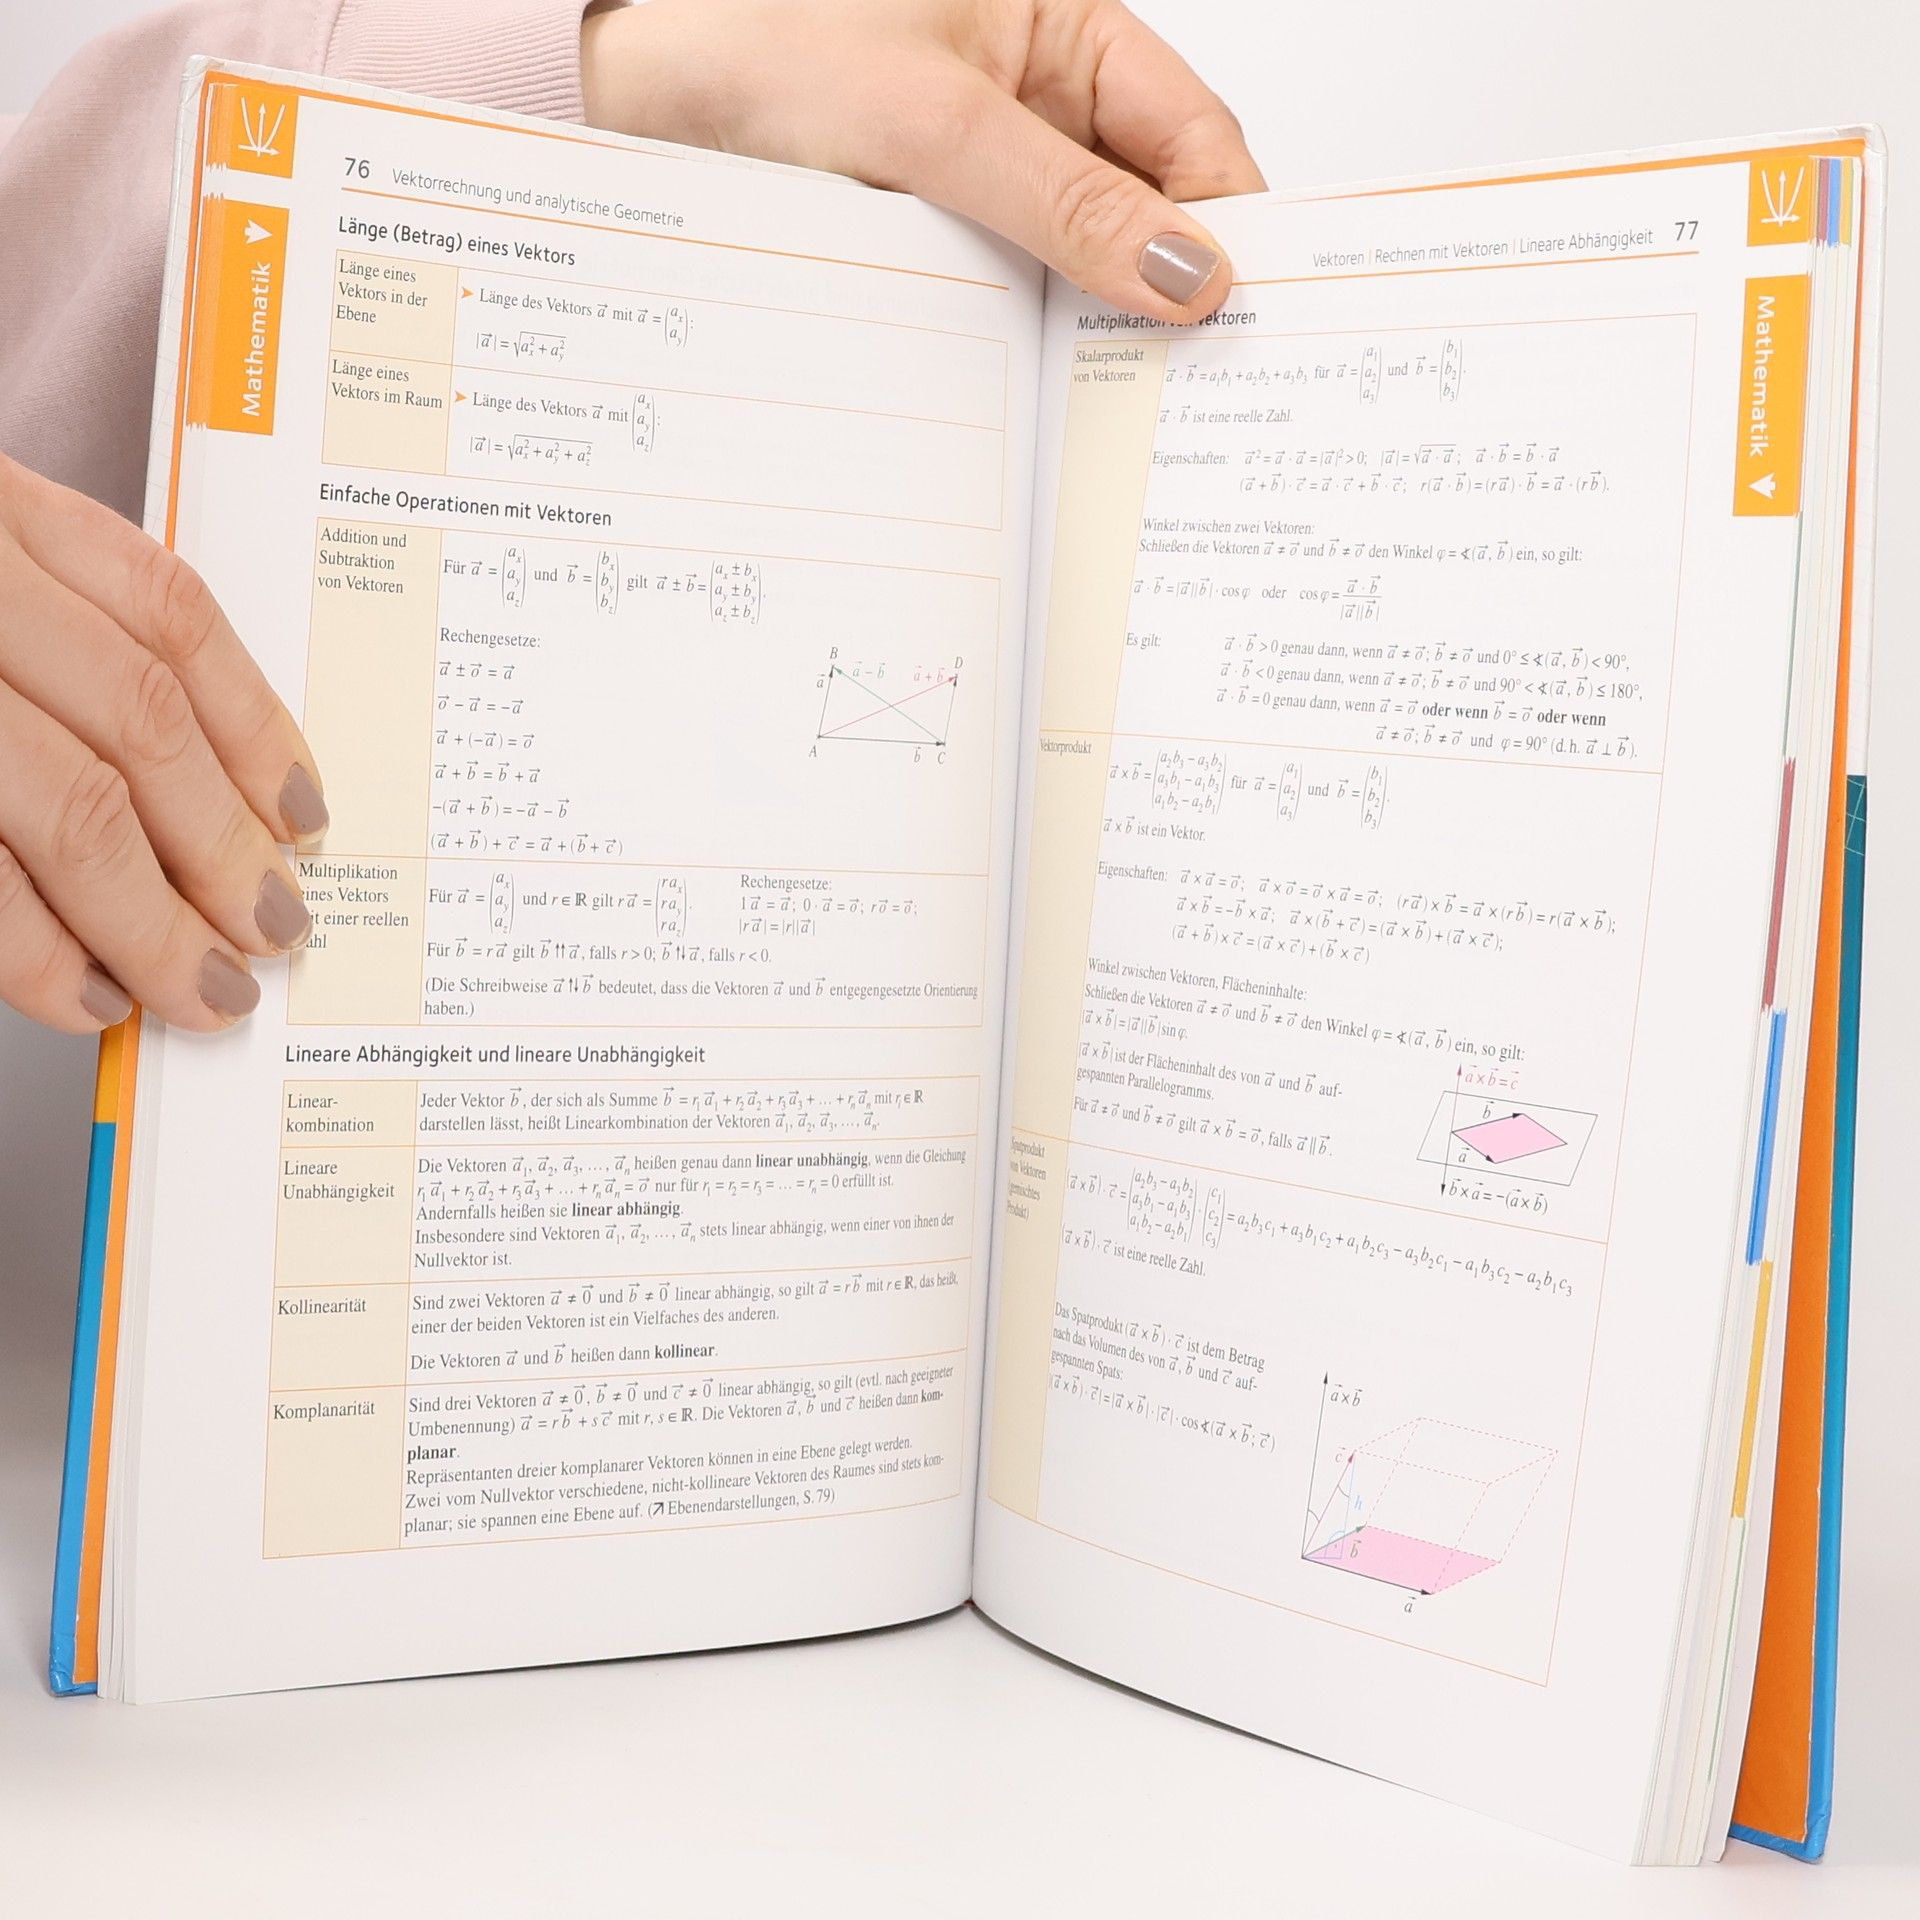 Mathematik
76 Vektorrechnung und analytische Geometrie
Länge (Betrag) eines Vektors
Länge eines
Vektors in der
Ebene
➤ Länge des Vektors a⃗ mit a⃗ = (aₓ, a_y):
|a⃗| = √(aₓ² + a_y²)
Länge eines
Vektors im Raum
➤ Länge des Vektors a⃗ mit (aₓ, a_y, a_z):
|a⃗| = √(aₓ² + a_y² + a_z²)
Einfache Operationen mit Vektoren
Addition und
Subtraktion
von Vektoren
Für a⃗ = (aₓ, a_y, a_z) und b⃗ = (bₓ, b_y, b_z) gilt a⃗ ± b⃗ = (aₓ ± bₓ, a_y ± b_y, a_z ± b_z).
Rechengesetze:
a⃗ ± o⃗ = a⃗
o⃗ − a⃗ = −a⃗
a⃗ + (−a⃗) = o⃗
a⃗ + b⃗ = b⃗ + a⃗
−(a⃗ + b⃗) = −a⃗ − b⃗
(a⃗ + b⃗) + c⃗ = a⃗ + (b⃗ + c⃗)
B a⃗ − b⃗ a⃗ + b⃗ D
a⃗
A b⃗ C
Multiplikation
eines Vektors
mit einer reellen
Zahl
Für a⃗ = (aₓ, a_y, a_z) und r ∈ ℝ gilt r a⃗ = (raₓ, ra_y, ra_z).
Rechengesetze:
1 a⃗ = a⃗; 0 · a⃗ = o⃗; r o⃗ = o⃗;
|r a⃗| = |r||a⃗|
Für b⃗ = r a⃗ gilt b⃗ ↑↑ a⃗, falls r > 0; b⃗ ↑↓ a⃗, falls r < 0.
(Die Schreibweise a⃗ ↑↓ b⃗ bedeutet, dass die Vektoren a⃗ und b⃗ entgegengesetzte Orientierung
haben.)
Lineare Abhängigkeit und lineare Unabhängigkeit
Linear-
kombination
Jeder Vektor b⃗, der sich als Summe b⃗ = r₁a⃗₁ + r₂a⃗₂ + r₃a⃗₃ + … + rₙa⃗ₙ mit rᵢ ∈ ℝ
darstellen lässt, heißt Linearkombination der Vektoren a⃗₁, a⃗₂, a⃗₃, …, a⃗ₙ.
Lineare
Unabhängigkeit
Die Vektoren a⃗₁, a⃗₂, a⃗₃, …, a⃗ₙ heißen genau dann linear unabhängig, wenn die Gleichung
r₁a⃗₁ + r₂a⃗₂ + r₃a⃗₃ + … + rₙa⃗ₙ = o⃗ nur für r₁ = r₂ = r₃ = … = rₙ = 0 erfüllt ist.
Andernfalls heißen sie linear abhängig.
Insbesondere sind Vektoren a⃗₁, a⃗₂, …, a⃗ₙ stets linear abhängig, wenn einer von ihnen der
Nullvektor ist.
Kollinearität
Sind zwei Vektoren a⃗ ≠ 0⃗ und b⃗ ≠ 0⃗ linear abhängig, so gilt a⃗ = r b⃗ mit r ∈ ℝ, das heißt,
einer der beiden Vektoren ist ein Vielfaches des anderen.
Die Vektoren a⃗ und b⃗ heißen dann kollinear.
Komplanarität
Sind drei Vektoren a⃗ ≠ 0⃗, b⃗ ≠ 0⃗ und c⃗ ≠ 0⃗ linear abhängig, so gilt (evtl. nach geeigneter
Umbenennung) a⃗ = r b⃗ + s c⃗ mit r, s ∈ ℝ. Die Vektoren a⃗, b⃗ und c⃗ heißen dann kom-
planar.
Repräsentanten dreier komplanarer Vektoren können in eine Ebene gelegt werden.
Zwei vom Nullvektor verschiedene, nicht-kollineare Vektoren des Raumes sind stets kom-
planar; sie spannen eine Ebene auf. (↗ Ebenendarstellungen, S. 79)
Vektoren | Rechnen mit Vektoren | Lineare Abhängigkeit 77
Mathematik
Multiplikation von Vektoren
Skalarprodukt
von Vektoren
a⃗ · b⃗ = a₁b₁ + a₂b₂ + a₃b₃ für a⃗ = (a₁, a₂, a₃) und b⃗ = (b₁, b₂, b₃).
a⃗ · b⃗ ist eine reelle Zahl.
Eigenschaften: a⃗² = a⃗ · a⃗ = |a⃗|² > 0; |a⃗| = √(a⃗ · a⃗); a⃗ · b⃗ = b⃗ · a⃗
(a⃗ + b⃗) · c⃗ = a⃗ · c⃗ + b⃗ · c⃗; r(a⃗ · b⃗) = (r a⃗) · b⃗ = a⃗ · (r b⃗).
Winkel zwischen zwei Vektoren:
Schließen die Vektoren a⃗ ≠ o⃗ und b⃗ ≠ o⃗ den Winkel φ = ∢(a⃗, b⃗) ein, so gilt:
a⃗ · b⃗ = |a⃗||b⃗| · cos φ oder cos φ = (a⃗ · b⃗)/(|a⃗||b⃗|)
Es gilt: a⃗ · b⃗ > 0 genau dann, wenn a⃗ ≠ o⃗; b⃗ ≠ o⃗ und 0° ≤ ∢(a⃗, b⃗) < 90°,
a⃗ · b⃗ < 0 genau dann, wenn a⃗ ≠ o⃗; b⃗ ≠ o⃗ und 90° < ∢(a⃗, b⃗) ≤ 180°,
a⃗ · b⃗ = 0 genau dann, wenn a⃗ = o⃗ oder wenn b⃗ = o⃗ oder wenn
a⃗ ≠ o⃗; b⃗ ≠ o⃗ und φ = 90° (d. h. a⃗ ⊥ b⃗).
Vektorprodukt
a⃗ × b⃗ = (a₂b₃ − a₃b₂, a₃b₁ − a₁b₃, a₁b₂ − a₂b₁) für a⃗ = (a₁, a₂, a₃) und b⃗ = (b₁, b₂, b₃).
a⃗ × b⃗ ist ein Vektor.
Eigenschaften: a⃗ × a⃗ = o⃗; a⃗ × o⃗ = o⃗ × a⃗ = o⃗; (r a⃗) × b⃗ = a⃗ × (r b⃗) = r(a⃗ × b⃗);
a⃗ × b⃗ = −b⃗ × a⃗; a⃗ × (b⃗ + c⃗) = (a⃗ × b⃗) + (a⃗ × c⃗);
(a⃗ + b⃗) × c⃗ = (a⃗ × c⃗) + (b⃗ × c⃗)
Winkel zwischen Vektoren, Flächeninhalte:
Schließen die Vektoren a⃗ ≠ o⃗ und b⃗ ≠ o⃗ den Winkel φ = ∢(a⃗, b⃗) ein, so gilt:
|a⃗ × b⃗| = |a⃗||b⃗| sin φ.
|a⃗ × b⃗| ist der Flächeninhalt des von a⃗ und b⃗ auf-
gespannten Parallelogramms.
Für a⃗ ≠ o⃗ und b⃗ ≠ o⃗ gilt a⃗ × b⃗ = o⃗, falls a⃗ ∥ b⃗.
a⃗ × b⃗ = c⃗
b⃗
a⃗
b⃗ × a⃗ = −(a⃗ × b⃗)
Spatprodukt
von Vektoren
(gemischtes
Produkt)
(a⃗ × b⃗) · c⃗ = (a₂b₃ − a₃b₂, a₃b₁ − a₁b₃, a₁b₂ − a₂b₁) · (c₁, c₂, c₃) = a₂b₃c₁ + a₃b₁c₂ + a₁b₂c₃ − a₃b₂c₁ − a₁b₃c₂ − a₂b₁c₃
(a⃗ × b⃗) · c⃗ ist eine reelle Zahl.
Das Spatprodukt (a⃗ × b⃗) · c⃗ ist dem Betrag
nach das Volumen des von a⃗, b⃗ und c⃗ auf-
gespannten Spats:
|(a⃗ × b⃗) · c⃗| = |a⃗ × b⃗| · |c⃗| · cos ∢(a⃗ × b⃗; c⃗)
a⃗ × b⃗
c⃗
h
b⃗
a⃗